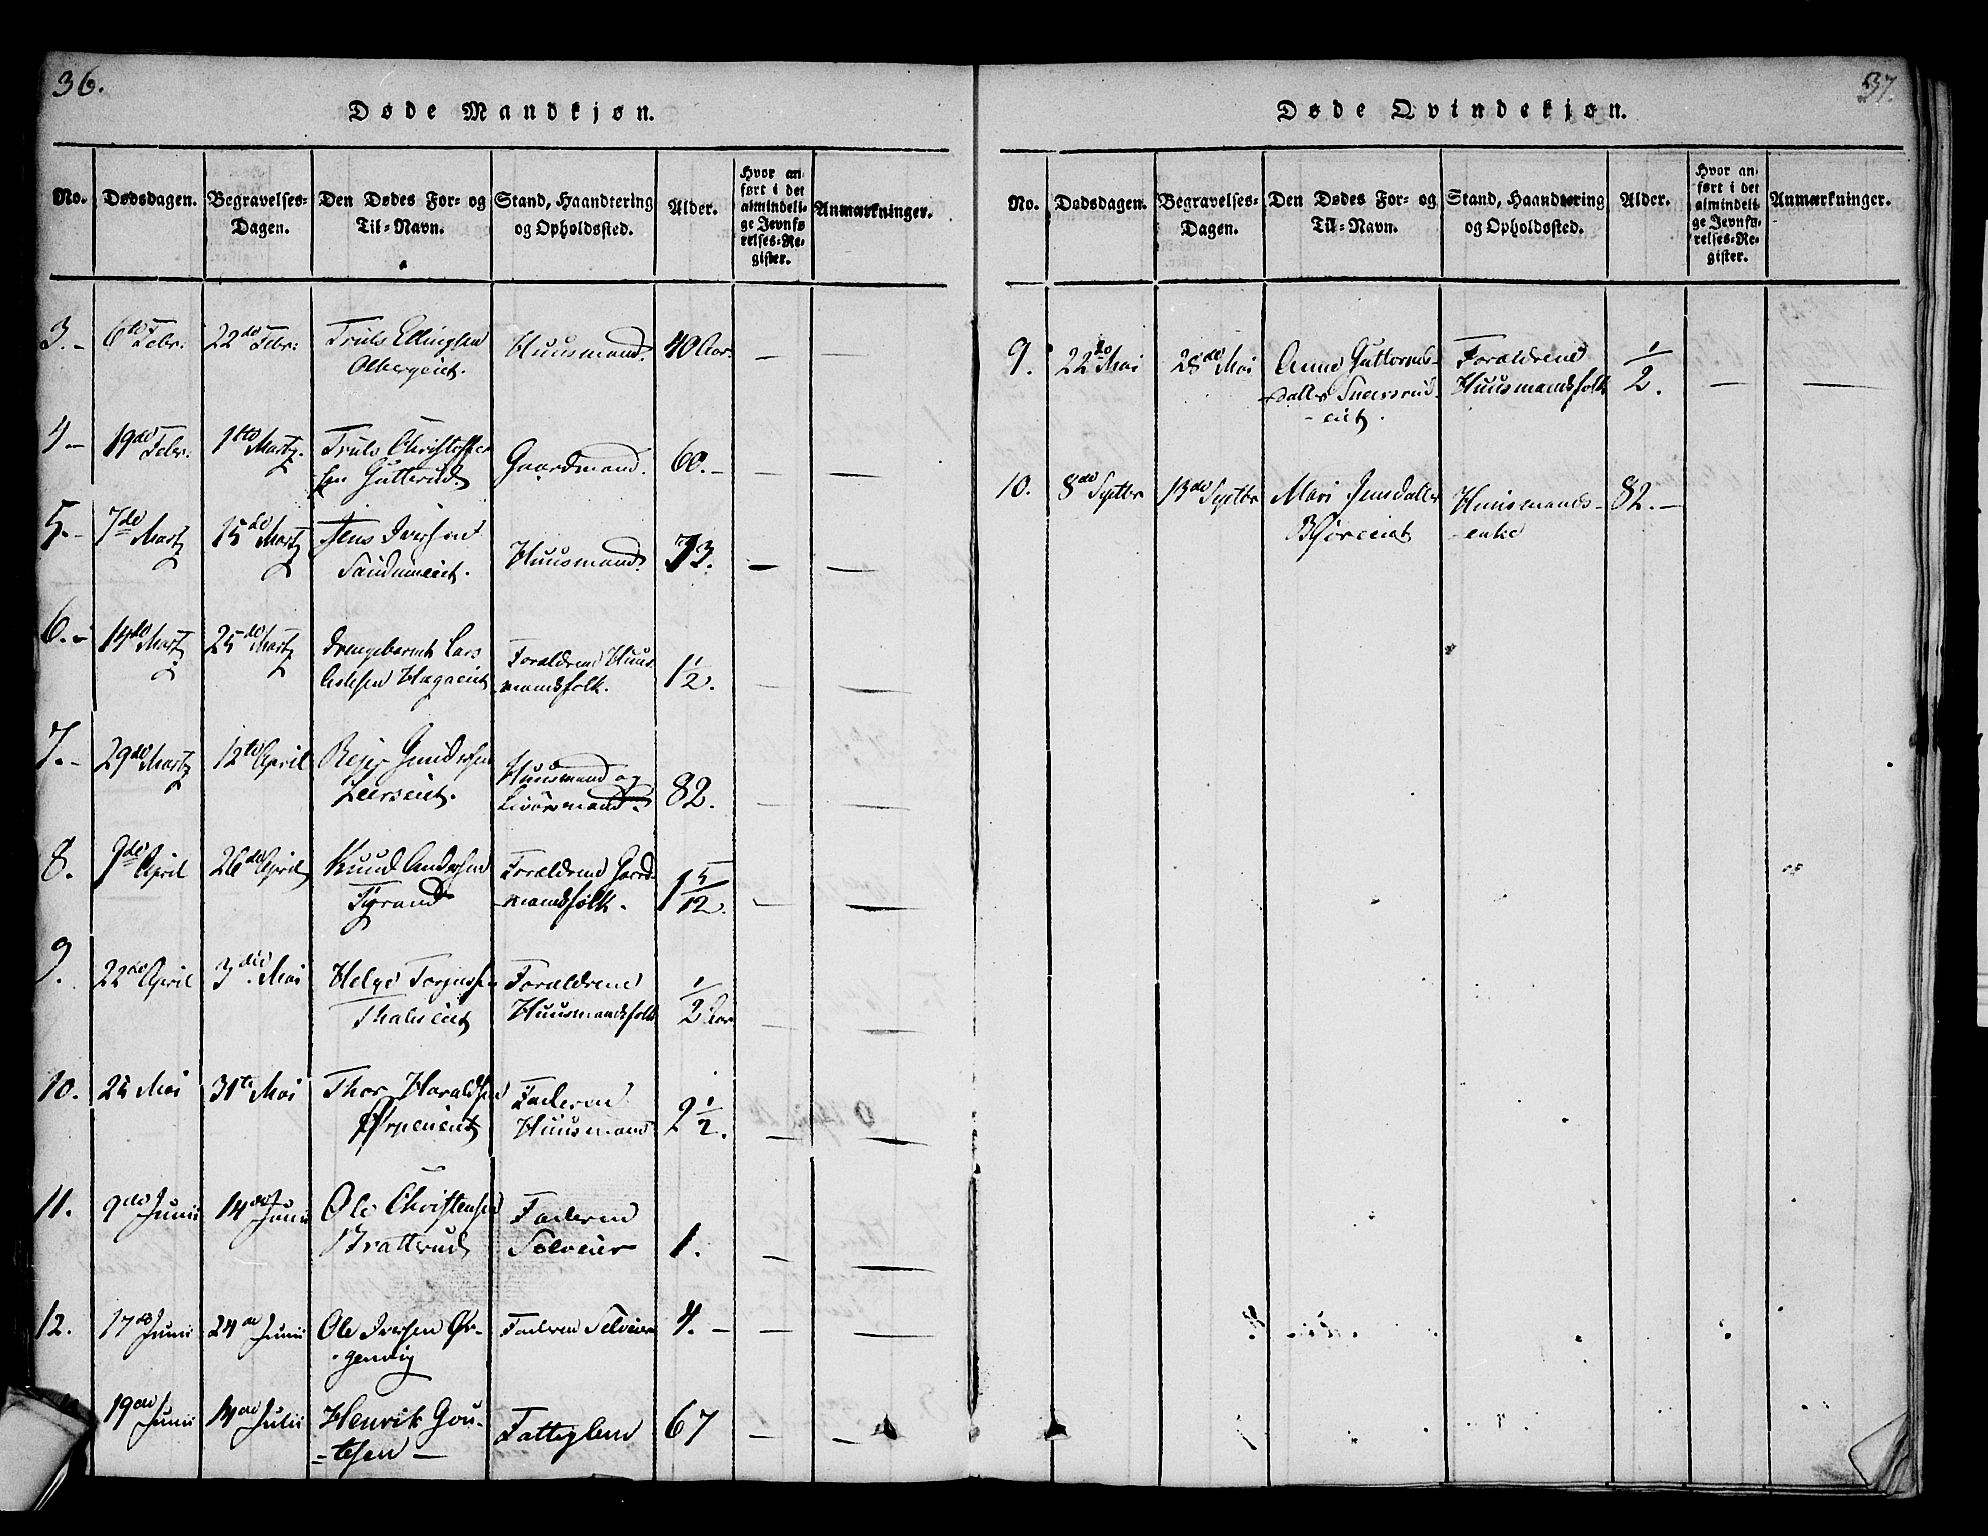 36.
Døde Mandkjøn.
No. Dødsdagen. Begravelses-Dagen. Den Dødes For- og Til-Navn. Stand, Haandtering og Opholdssted. Alder. Hvor anført i det almindelige Jevnførelses-Register. Anmærkninger.
3.- 6te Febr: 22de Febr: Truls Ellingsen Huusmand. 40 Aar. — —
Olbergeiet.
4- 19de Febr. 1ste Martz. Truls Christoffer Gaardmand. 60.- — —
sen Gutterud.
5.- 7de Martz 15de Martz Jens Iversen Huusmand. 73. — —
6.- 14de Martz 25de Martz Drengebarnet Lars Forældrene Huus 1 1/2. — —
Hagaeiet mandsfolk.
7.- 29de Martz 12te April Gundersen Huusmand og 82. — —
8. April 26de April Knud Andersen Forældrene Gaard 1 5/12. — —
-mandsfolk.
9. 22de April 3die Mai Helge Forældrene 1/2 Aar — —
Huusmandsfolk
10. Mai 31te Mai Thor Haraldsen Faderen 2 1/2. — —
Huusmand
11. 9de Junii 14de Junii Ole Christensen Faderen 1. — —
Bratterud Selveier
12. 17de Junii 24de Junii Ole Iversen Ør- Faderen Selveier 4.- — —
-genvig
19de Junii 14de Julii Henrik Gou- Fattiglem 67 — —
-tesen —
37.
Døde Qvindekjøn.
No. Dødsdagen. Begravelses-Dagen. Den Dødes For- og Til-Navn. Stand, Haandtering og Opholdssted. Alder. Hvor anført i det almindelige Jevnførelses-Register. Anmærkninger.
9. 22de Mai 28de Mai Anne Guttorms- Forældrene 1/2. — —
-datter Huusmandsfolk
-eiet.
10. 8de Septbr 13de Septbr Mari Jensdatter Huusmands- 82.-
Bjøreeiet -enke